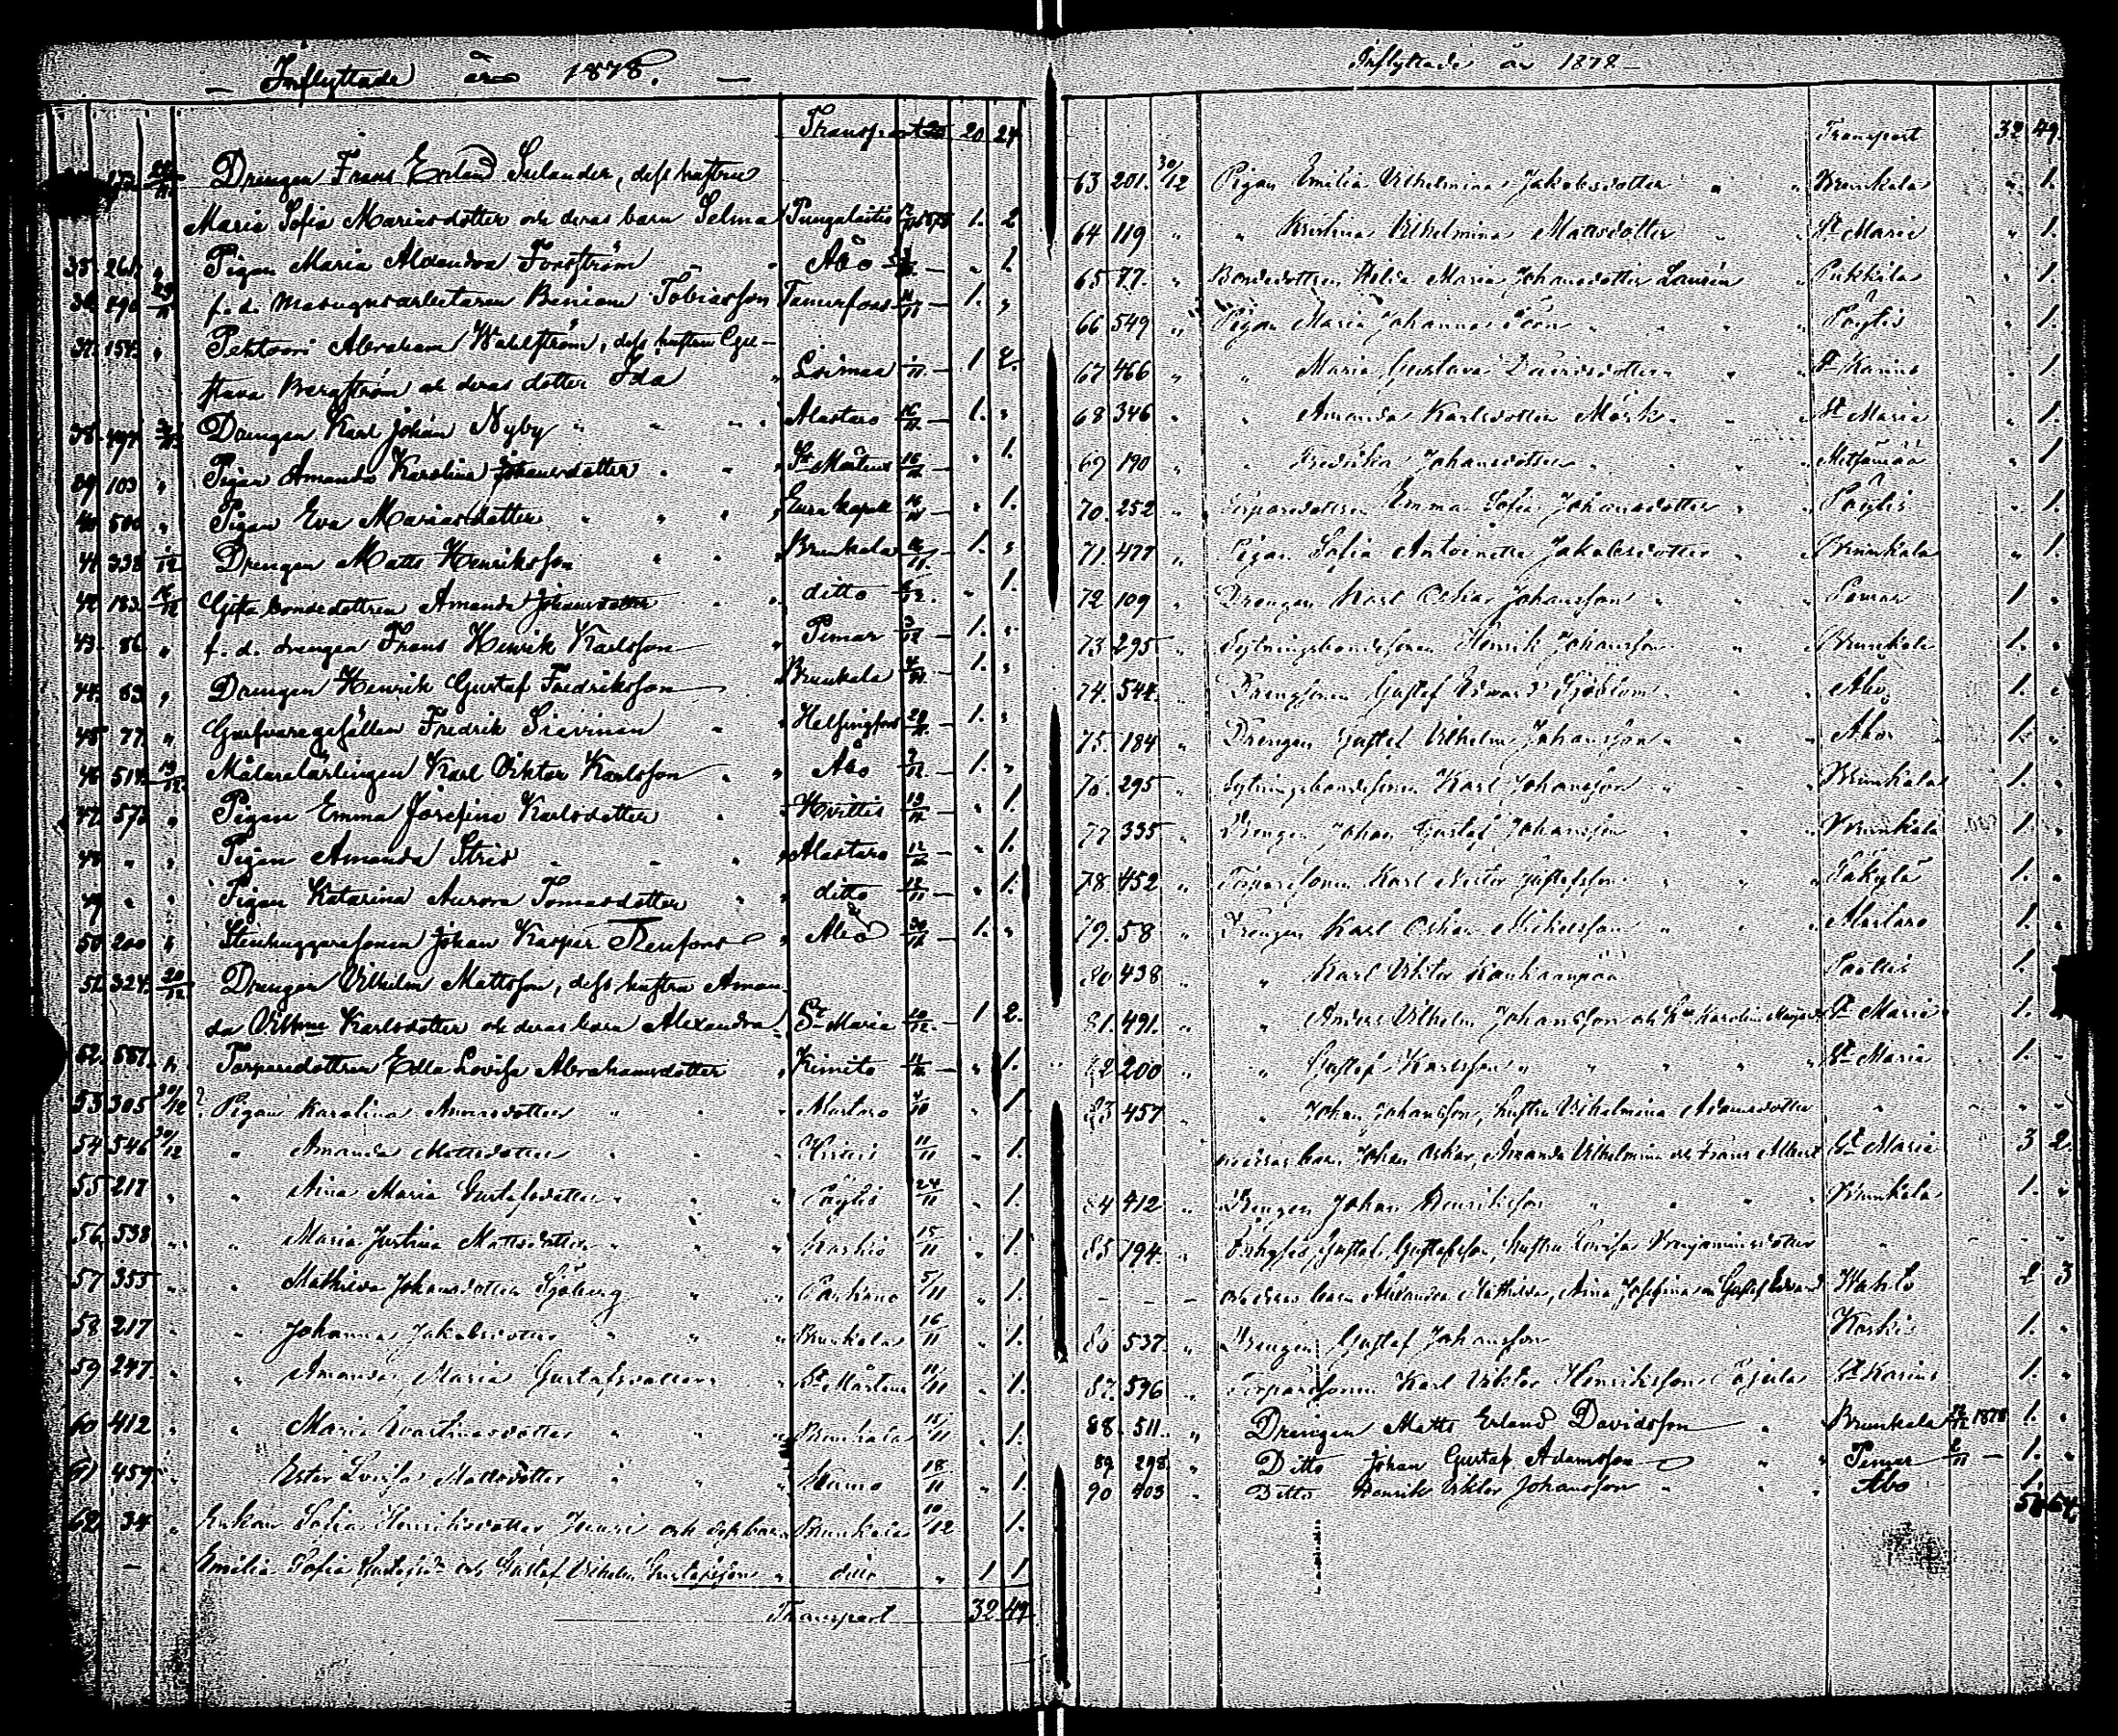 Inflyttade år 1878.
Transport 20 27
Drengen Frans Erland Selander, dess hustru
Maria Sofia Mariasdotter och deras barn Selma Pungalaitio 1. 2
35. 261. " Pigan Maria Forsström Åbo " 1.
36. 290 f. d. Masugnsarbetaren Beniam Tobiasson Tamerfors 1. "
37. 154. " Abraham Wahlström, dess hustru
Bergström och deras dotter Ida Loimaa 1 2.
38. 497. Drengen Karl Johan Nyby " Alastaro 16/11 1. "
39 103 " Pigan Amanda Karolina Johansdotter St Mårtens 16/11 " 1.
40 500 " Pigan Eva Mariasdotter Eura kapell 16/11 " 1.
41 338 Drengen Matts Henriksson Brunkala 1. "
42 183. 16/12 Gifta bondedottren Amanda Johansdotter ditto " 1.
43. 86 " f. d. drengen Frans Henrik Karlsson Pemar 3/12 1. "
44. 83 " Drengen Henrik Gustaf Fredriksson Brunkala 1. "
45 77. " Garfvaregesällen Fredrik Sirinen Helsingfors 1. "
46 514. 19/12. Målarelärlingen Karl Viktor Karlsson Åbo 1. "
47. 573 " Pigan Emma Josefina Karlsdotter Hvittis " 1.
48 " " Pigan Amanda Strid Alastaro " 1.
49 " " Pigan Katarina Aurora Tomasdotter ditto " 1.
50 200 " Stenhuggaresonen Johan Kasper Renfors Åbo 1. "
51. 324. 20/12 Drengen Vilhelm Mattsson, dess hustru Aman-
da Vilhma Karlsdotter och deras barn Alexandra St Maria 20/12 1 2.
52. 587. " Torparedottren Edla Lovisa Abrahamsdotter Kimito " 1.
53 305 30/12 Pigan Karolina Annasdotter Alastaro " 1.
54 546 30/12 " Amanda Mattsdotter 11/11 " 1.
55 217 " " Aina Maria Gustafsdotter Pöytis 24/11 " 1.
56 538 " " Maria Justina Mattsdotter Koskis 15/11 " 1.
57 355 " " Mathilda Johansdotter Sjöberg 5/11 " 1.
58. 217 " " Johanna Jakobsdotter Brunkala 16/11 " 1.
59 247. " " Amanda Maria Gustafsdotter St Mårtens " 1.
60 412 " " Maria Brunkala 15/11 " 1.
61 459 " Ester Lovisa Mattsdotter 18/11 " 1.
62. 34 " Enkan Sofia Henriksdotter och dess barn Brunkala 10/12 1.
Emilia Sofia och Gustaf Vilhelm Gustafsson ditto " 1 1
Transport 32 49
Inflyttade år 1878
Transport 32 49.
63 201. 30/12 Pigan Emilia Vilhelmina Jakobsdotter Brunkala " 1.
64 119 " " Kristina Vilhelmina Mattsdotter St Marie " 1.
65 77. " Bondedottren Maria Johansdotter Laurén Pukkila " 1.
66 549 " Pigan Maria Johanna Pöytis " 1.
67 466 " " Maria Gustava Davidsdotter St Karins " 1.
68 346 " " Amanda Karlsdotter Mark St Maria " 1.
69 190 " " Fredrika Johansdotter Metsämää " 1
70. 252 " Torparedottren Emma Sofia Johansdotter Pöytis " 1.
71. 477 " Pigan Sofia Antoinette Jakobsdotter Brunkala " 1.
72 109 " Drengen Karl Oskar Johansson Pemar 1 "
73 295 " Sytningsbondesonen Henrik Johansson Brunkala 1. "
74. 544. " Drengsonen Gustaf Edvard Sjöblom Åbo 1. "
75. 184 " Drengen Gustaf Vilhelm Johansson Åbo 1. "
76. 295 " Sytningsbondesonen Karl Johansson Brunkala 1. "
77 335 " Drengen Johan Gustaf Johansson Brunkala 1. "
78. 452. " Torparesonen Karl Viktor Gustafsson Säkylä 1. "
79. 58 " Drengen Karl Oskar Mickelsson Alastaro 1. "
80 438 " Karl Viktor Kankaanpää Pöytis 1. "
81. 491. " " Anders Vilhelm Johansson och Karolina St Maria 1. 1
82 200 " " Gustaf Karlsson St Maria 1. "
83 457 " " Johan Johansson, hustru Vilhelmina Adamsdotter "
och deras barn Johan Oskar, Amanda Vilhelmina och Frans Albert St Maria 3 2.
84 412 " Drengen Johan Henriksson Brunkala 1. "
85 194. " Gustaf Gustafsson, hustru Lovisa Benjaminsdotter "
och deras barn Alexandra Mathilda, Aina Josefina och Gustaf Edvard Vahto 2 3
86 537. " Drengen Gustaf Johansson Koskis 1. "
87. 596 " Torparesonen Karl Viktor Henriksson St Karins 1. "
88. 511. " Drengen Matts Erland Davidsson Brunkala 1878 1. "
89 298. " Ditto Johan Gustaf Adamsson Pemar 1. "
90 403 " Ditto Henrik Viktor Johansson Åbo 1.